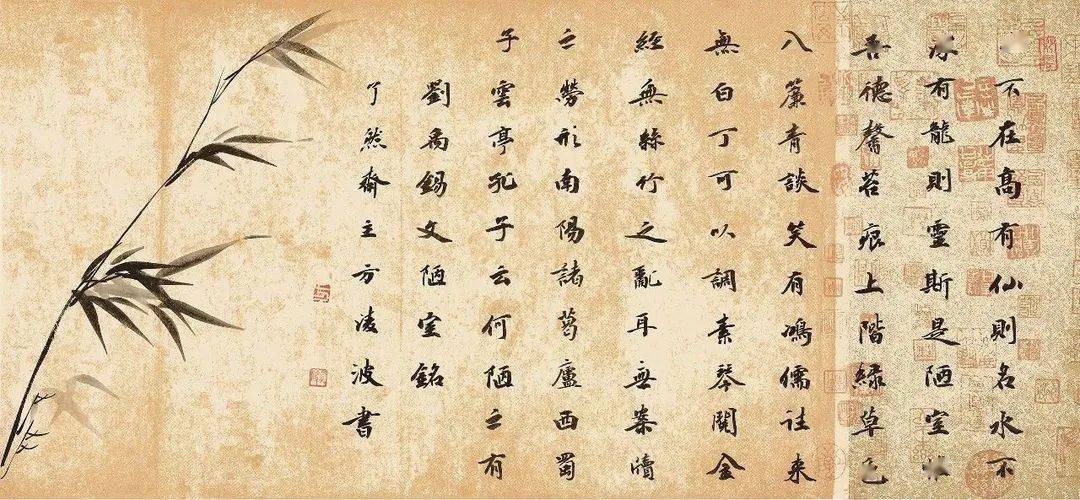 不在高有仙則名水不
深有龍則靈斯是陋室惟
吾德馨苔痕上階緑草色
入簾青談笑有鴻儒往來
無白丁可以調素琴閱金
經無絲竹之亂耳無案牘
之勞形南陽諸葛廬西蜀
子雲亭孔子云何陋之有
劉禹錫文陋室銘
了然齋主方凌波書